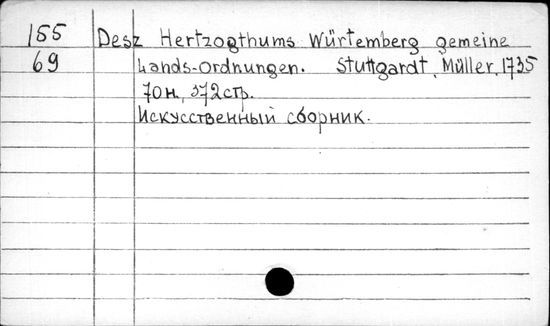 155 Desz Hertzogthums Würtemberg gemeine
69 Lands-Ordnungen. Stuttgardt, Müller, 1735
70 н., 372 стр.
Искусственный сборник.